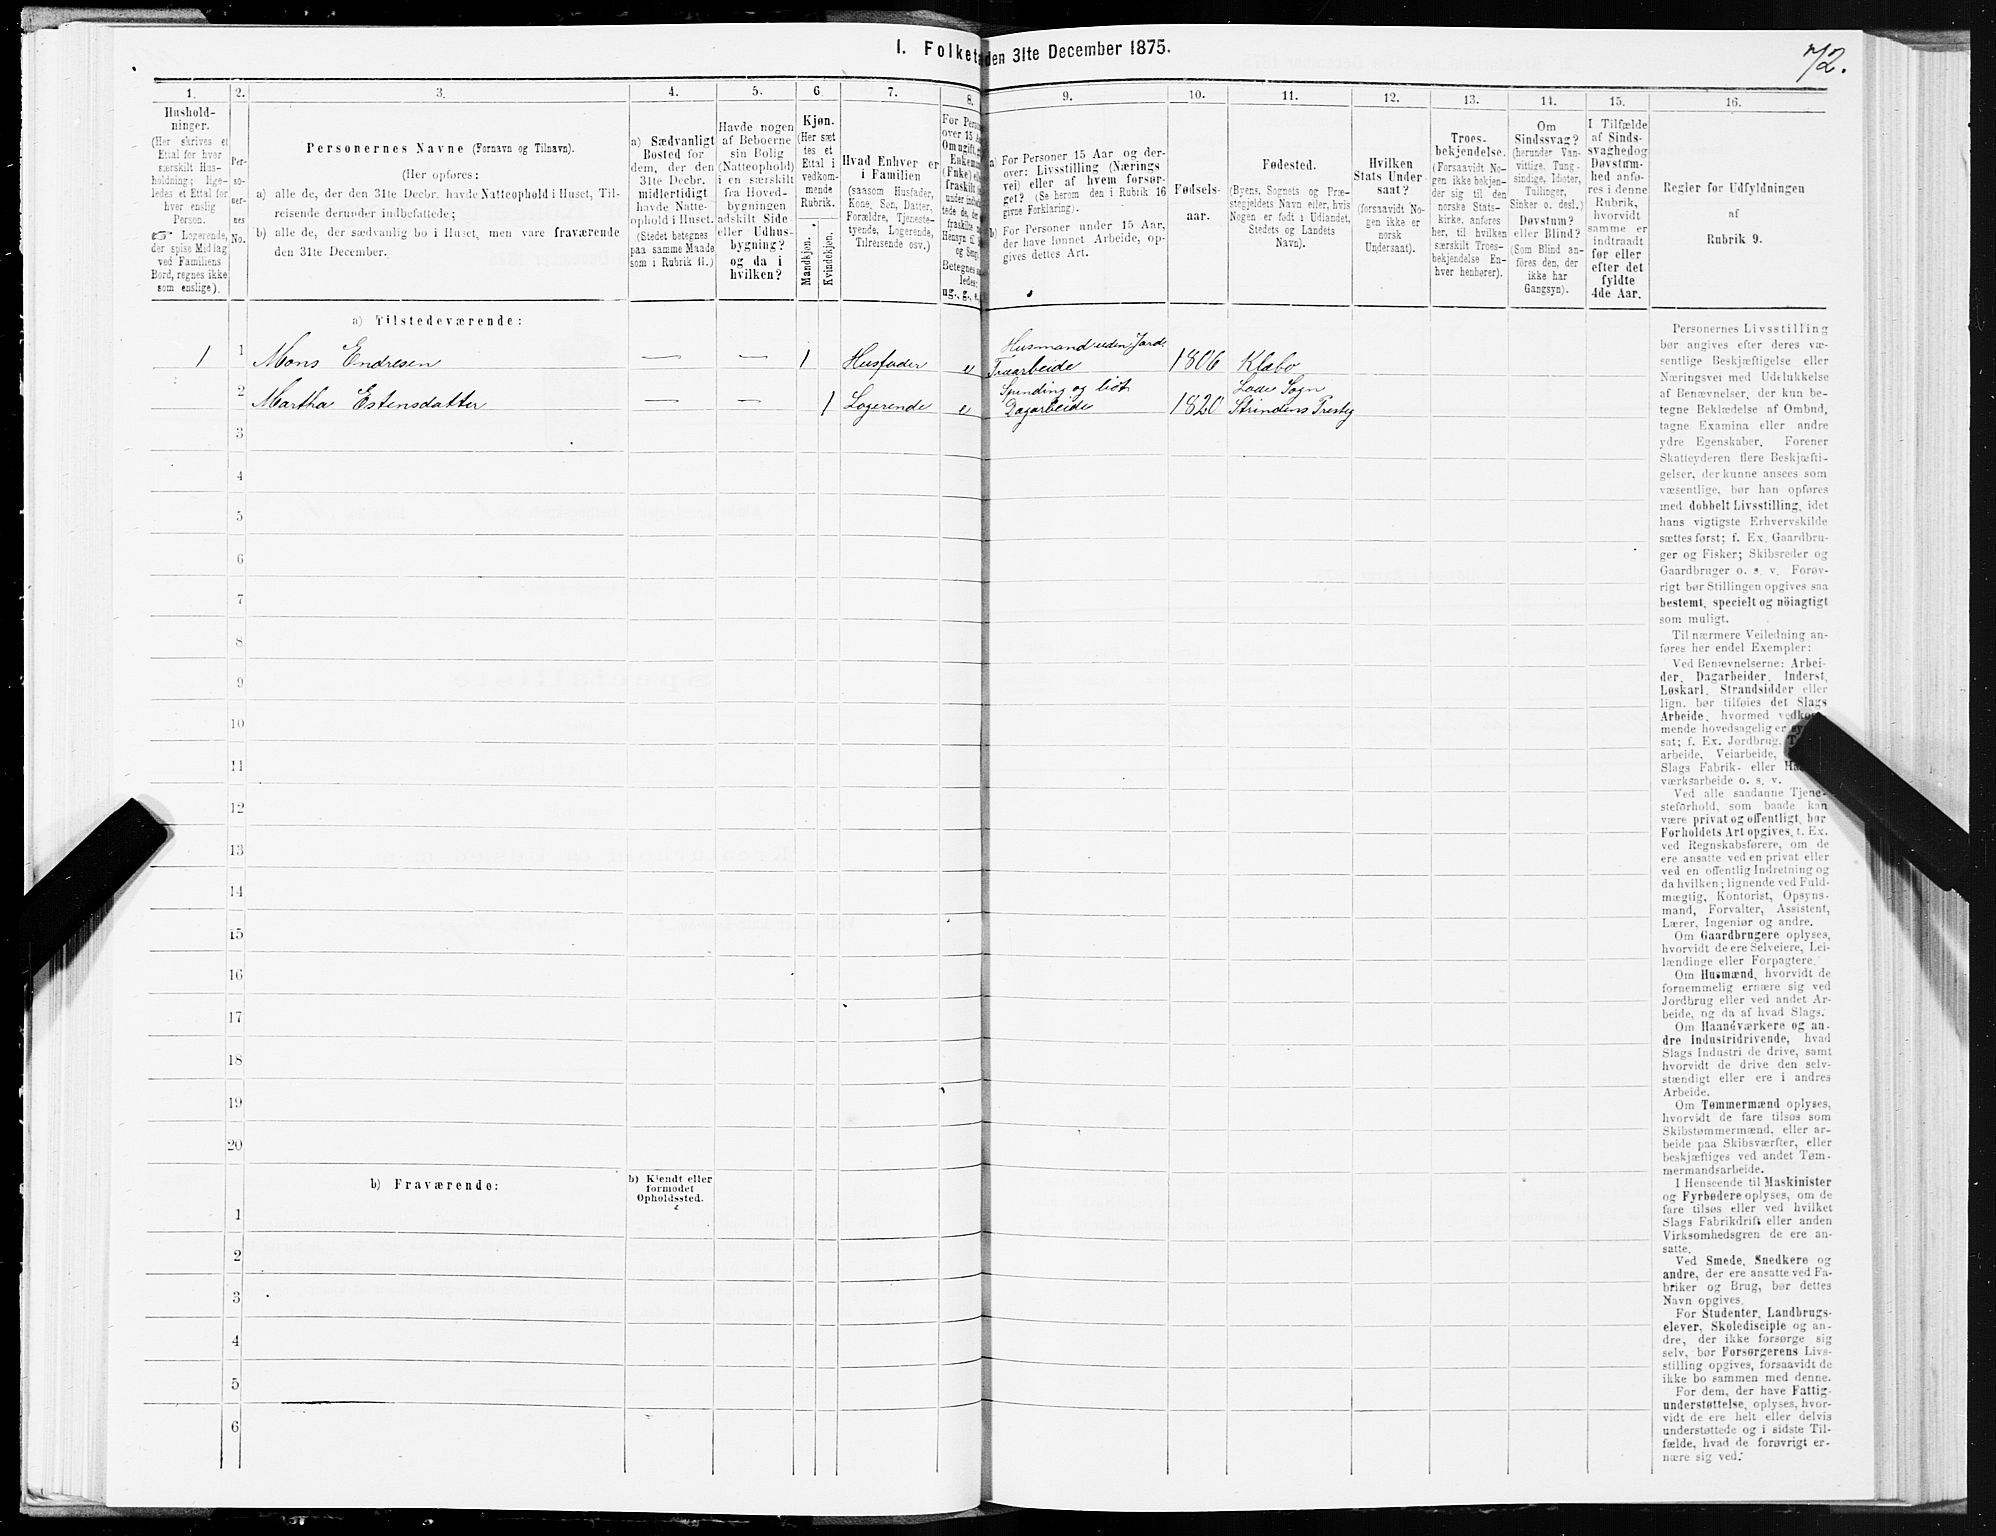 I. Folket den 31te December 1875.
72.
1.
Hushold-
ninger.
(Her skrives et
Ettal for hver
særskilt Hus-
holdning; lige-
ledes et Ettal for
hver enslig
Person.
☞ Logerende,
der spise Middag
ved Familiens
Bord, regnes ikke
som enslige).
2.
Per-
so-
ner-
nes
No.
3.
Personernes Navne (Fornavn og Tilnavn).
(Her opføres:
a) alle de, der den 31te Decbr. havde Natteophold i Huset, Til-
reisende derunder indbefattede;
b) alle de, der sædvanlig bo i Huset, men vare fraværende
den 31te December.
4.
a) Sædvanligt
Bosted for
dem, der den
31te Decbr.
midlertidigt
havde Natte-
ophold i Huset.
(Stedet betegnes
paa samme Maade
som i Rubrik 11.)
5.
Havde nogen
af Beboerne
sin Bolig
(Natteophold)
i en særskilt
fra Hoved-
bygningen
adskilt Side-
eller Udhus-
bygning?
og da i
hvilken?
6
Kjøn.
(Her sæt
tes et
Ettal i
vedkom-
mende
Rubrik.
Mandkjøn.
Kvindekjøn.
7.
Hvad Enhver er
i Familien
(saasom Husfader,
Kone, Søn, Datter,
Forældre, Tjeneste-
tyende, Logerende,
Tilreisende osv.)
8.
For Perso
over 15 Aar
Om ugift, g
Enkemm
(Enke) el
fraskilt
ug., g., e.
9.
a) For Personer 15 Aar og der-
over: Livsstilling (Nærings
vei) eller af hvem forsør-
get? (Se herom den i Rubrik 16
givne Forklaring).
b) For Personer under 15 Aar,
der have lønnet Arbeide, op-
gives dettes Art.
10.
Fødsels-
aar.
11.
Fødested.
(Byens, Sognets og Præ-
stegjeldets Navn eller, hvis
Nogen er født i Udlandet,
Stedets og Landets
Navn).
12.
Hvilken
Stats Under
saat?
(forsaavidt No-
gen ikke er
norsk
Undersaat).
13.
Troes-
bekjendelse.
(Forsaavidt No-
gen ikke bekjen-
der sig til den
norske Stats-
kirke, anføres
her, til hvilken
særskilt Troes-
bekjendelse En-
hver henhører).
14.
Om
Sindssvag?
(herunder Van-
vittige, Tung-
sindige, Idioter,
Tullinger,
Sinker o. desl.)
Døvstum?
eller Blind?
(Som Blind an-
føres den, der
ikke har
Gangsyn).
15.
I Tilfælde
af Sinds-
svaghed og
Døvstum-
hed anfø-
res i denne
Rubrik,
hvorvidt
samme er
indtraadt
før eller
efter det
fyldte
4de Aar.
16.
Regler for Udfyldningen
af
Rubrik 9.
a) Tilstedeværende:
1 1 Mons Endresen — — 1 Husfader e Husmand uden Jord
Træarbeide 1806 Klæbo
2 Martha Estensdatter — — 1 Logerende e Spinding og lidt
Dagarbeide 1820 Lade Sogn
Strindens Prestg
3
4
5
6
7
8
9
10
11
12
13
14
15
16
17
18
19
20
b) Fraværende:
b) Kjendt eller
formodet
Opholdssted.
1
2
3
4
5
6
Personernes Livsstilling
bør angives efter deres væ-
sentlige Beskjæftigelse eller
Næringsvei med Udelukkelse
af Benævnelser, der kun be-
tegne Beklædelse af Ombud,
tagne Examina eller andre
ydre Egenskaber. Forener
Skatteyderen flere Beskjæfti-
gelser, der kunne ansees som
væsentlige, bør han opføres
med dobbelt Livsstilling, idet
hans vigtigste Erhvervskilde
sættes først; f. Ex. Gaardbru-
ger og Fisker; Skibsreder og
Gaardbruger o. s. v. Forøv-
rigt bør Stillingen opgives saa
bestemt, specielt og nöiagtigt
som muligt.
Til nærmere Veiledning an-
føres her endel Exempler:
Ved Benævnelserne: Arbei-
der, Dagarbeider, Inderst,
Løskarl, Strandsidder eller
lign. bør tilføies det Slags
Arbeide, hvormed vedkom-
mende hovedsagelig er sys
sat; f. Ex. Jordbrug, T
arbeide, Veiarbeide,
Slags Fabrik- eller Ha
værksarbeide o. s. v.
Ved alle saadanne Tjene-
steforhold, som baade kan
være privat og offentligt, bør
Forholdets Art opgives, t. Ex.
ved Regnskabsførere, om de
ere ansatte ved en privat eller
ved en offentlig Indretning og
da hvilken; lignende ved Fuld-
mægtig, Kontorist, Opsyns-
mand, Forvalter, Assistent,
Lærer, Ingeniør og andre.
Om Gaardbrugere oplyses,
hvorvidt de ere Selveiere, Lei-
lændinge eller Forpagtere.
Om Husmænd, hvorvidt de
fornemmelig ernære sig ved
Jordbrug eller ved andet Ar-
beide, og da af hvad Slags.
Om Haandværkere og an-
dre Industridrivende, hvad
Slags Industri de drive, samt
hvorvidt de drive den selv-
stændigt eller ere i andres
Arbeide.
Om Tømmermænd oplyses,
hvorvidt de fare tilsøs som
Skibstømmermænd, eller ar-
beide paa Skibsværfter, eller
beskjæftiges ved andet Tøm-
mermandsarbeide.
I Henseende til Maskinister
og Fyrbødere oplyses, om de
fare tilsøs eller ved hvilket
Slags Fabrikdrift eller anden
Virksomhedsgren de ere an-
satte.
Ved Smede, Snedkere og
andre, der ere ansatte ved Fa-
briker og Brug, bør dettes
Navn opgives.
For Studenter, Landbrugs-
elever, Skoledisciple og an-
dre, der ikke forsørge sig
selv, bør Forsørgerens Livs-
stilling opgives, forsaavidt de
ikke bo sammen med denne.
For dem, der have Fattig-
understøttelse, oplyses, hvor-
vidt de ere helt eller delvis
understøttede og i sidste Til-
fælde, hvad de forøvrigt er-
nære sig ved.